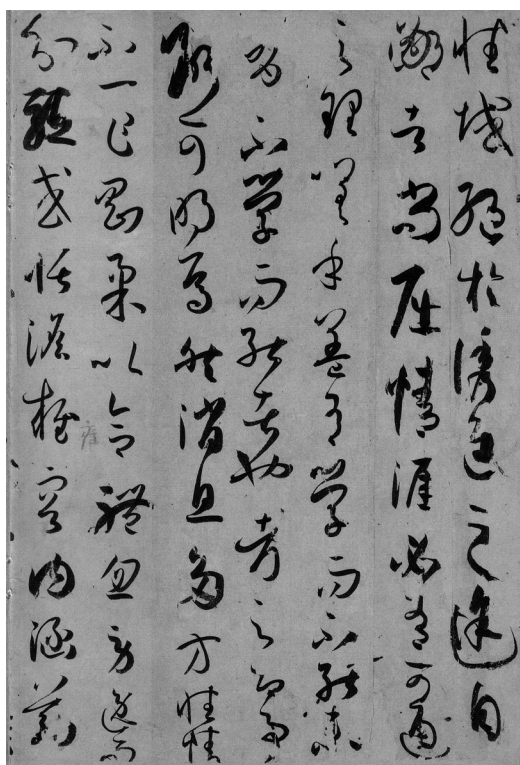 性域絕於誘進之途自
鄙者尚屈情涯必有可通
之理嗟乎蓋有學而不能未
有不學而能者也考之即事
斷可明焉然消息多方性情
不一乍剛柔以合體忽勞逸而
分驅或恬憺雍容內涵筋